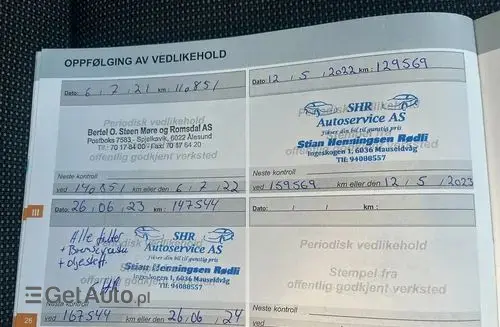 OPPFØLGING AV VEDLIKEHOLD
Dato: 6 / 7 / 21 km: 110851
Periodisk vedlikehold
Bertel O. Steen Møre og Romsdal AS
Postboks 7593 - Spjelkavik, 6022 Ålesund
Tlf: 70 17 64 00 - Faks: 70 17 64 20
offentlig godkjent verksted
Neste kontroll
ved 140851 km eller den 6 / 7 / 22
Dato: 12 / 5 / 2022 km: 129569
SHR
Autoservice AS
Fikser din bil til gunstig pris
Stian Henningsen Rødli
Ingeskogen 1, 6036 Mauseidvåg
Tlf: 94088557
Neste kontroll
ved 159569 km eller den 12 / 5 / 2023
III
Dato: 26 / 06 / 23 km: 147544
Alle filter
+ Bremsevæske
+ oljeskift
SHR
Autoservice AS
Stian Henningsen Rødli
Ingeskogen 1, 6036 Mauseidvåg
Tlf: 94088557
Neste kontroll
ved 167544 km eller den 26 / 06 / 24
Dato: / / km:
Periodisk vedlikehold
Stempel fra
offentlig godkjent verksted
Neste kontroll
ved km eller den / /
26
GetAuto.pl